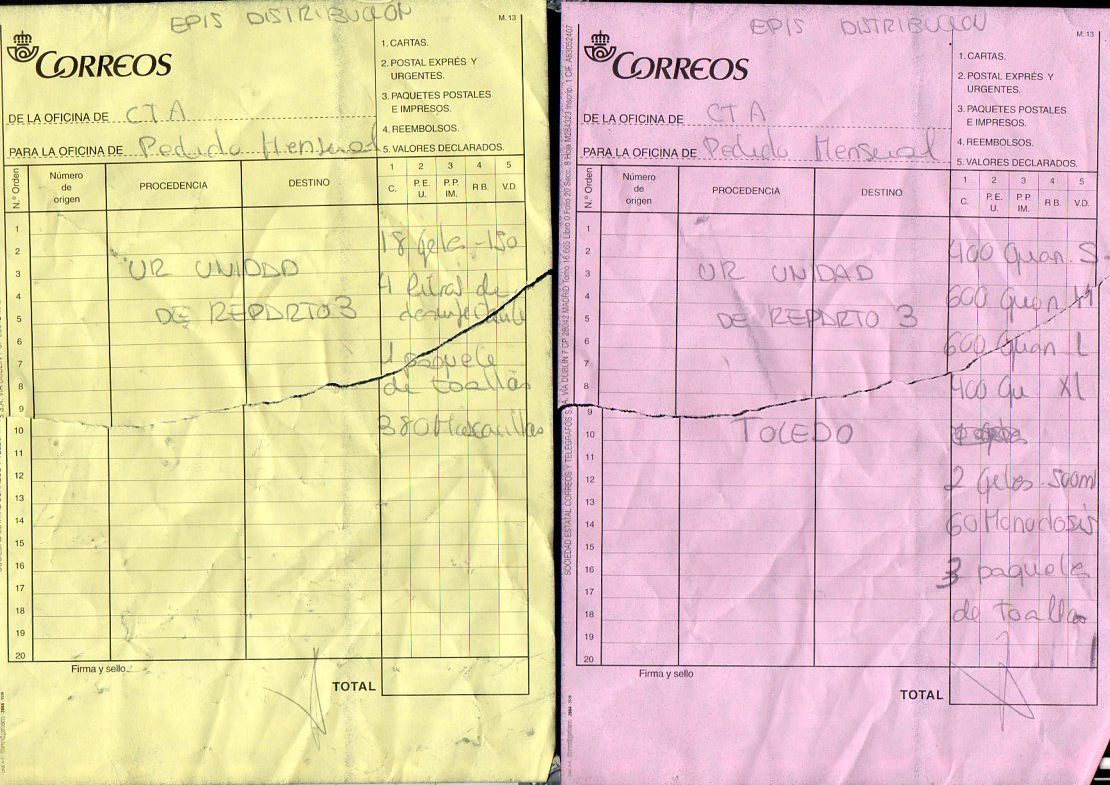 EPIS DISTRIBUCION
M. 13
CORREOS
1. CARTAS.
2. POSTAL EXPRÉS Y
URGENTES.
3. PAQUETES POSTALES
E IMPRESOS.
4. REEMBOLSOS.
5. VALORES DECLARADOS.
DE LA OFICINA DE CTA
PARA LA OFICINA DE Pedido Mensual
N.º Orden
Número
de
origen
PROCEDENCIA
DESTINO
1 2 3 4 5
C. P.E. P.P. R.B. V.D.
U. IM.
1
2
3
4
5
6
7
8
9
10
11
12
13
14
15
16
17
18
19
20
UR UNIDAD
DE REPARTO 3
18 geles - 150
4 litral de
desinfectante
1 paquete
de toallas
380 Mascarillas
Firma y sello
TOTAL
EPIS DISTRIBUCION
M. 13
CORREOS
1. CARTAS.
2. POSTAL EXPRÉS Y
URGENTES.
3. PAQUETES POSTALES
E IMPRESOS.
4. REEMBOLSOS.
5. VALORES DECLARADOS.
DE LA OFICINA DE CTA
PARA LA OFICINA DE Pedido Mensual
N.º Orden
Número
de
origen
PROCEDENCIA
DESTINO
1 2 3 4 5
C. P.E. P.P. R.B. V.D.
U. IM.
1
2
3
4
5
6
7
8
9
10
11
12
13
14
15
16
17
18
19
20
UR UNIDAD
DE REPARTO 3
TOLEDO
400 Guan S
600 Guan M
600 Guan L
400 Gu XL
2 Geles 500ml
60 Monodosis
3 paquete
de toalla
Firma y sello
TOTAL
SOCIEDAD ESTATAL CORREOS Y TELÉGRAFOS S.A. VÍA DUBLÍN 7 CP 28042 MADRID Tomo 16.665 Libro 0 Folio 20 Secc. 8 Hoja M284323 Inscrip. 1 CIF. A83052407